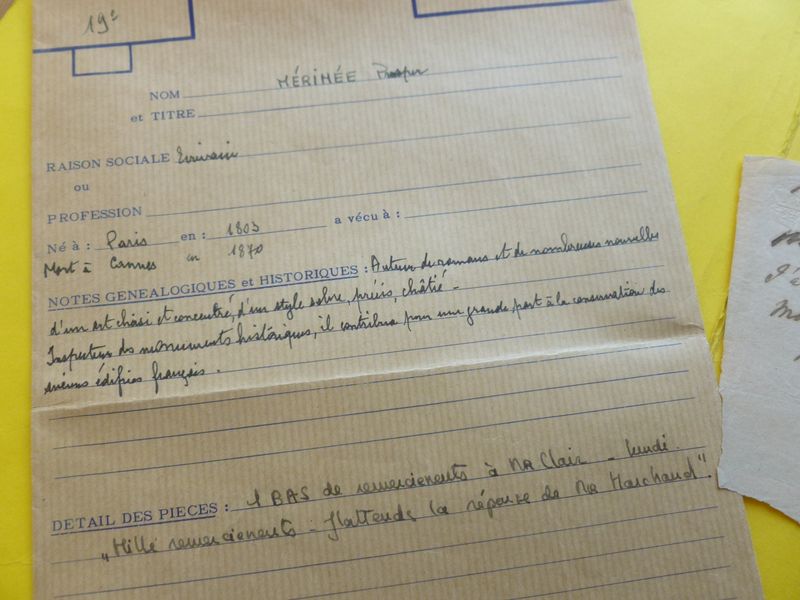 19e
NOM MÉRIMÉE Prosper
et TITRE
RAISON SOCIALE Ecrivain
ou
PROFESSION
Né à : Paris en : 1803 a vécu à :
Mort à Cannes en 1870
NOTES GENEALOGIQUES et HISTORIQUES : Auteur de romans et de nombreuses nouvelles
d'un art choisi et concentré, d'un style sobre, précis, châtié -
Inspecteur des monuments historiques, il contribua pour une grande part à la conservation des
anciens édifices français.
DETAIL DES PIECES : 1 BAS de remerciements à Mr Clair - lundi.
"Mille remerciements - J'attends la réponse de Mr Marchand".
J'a